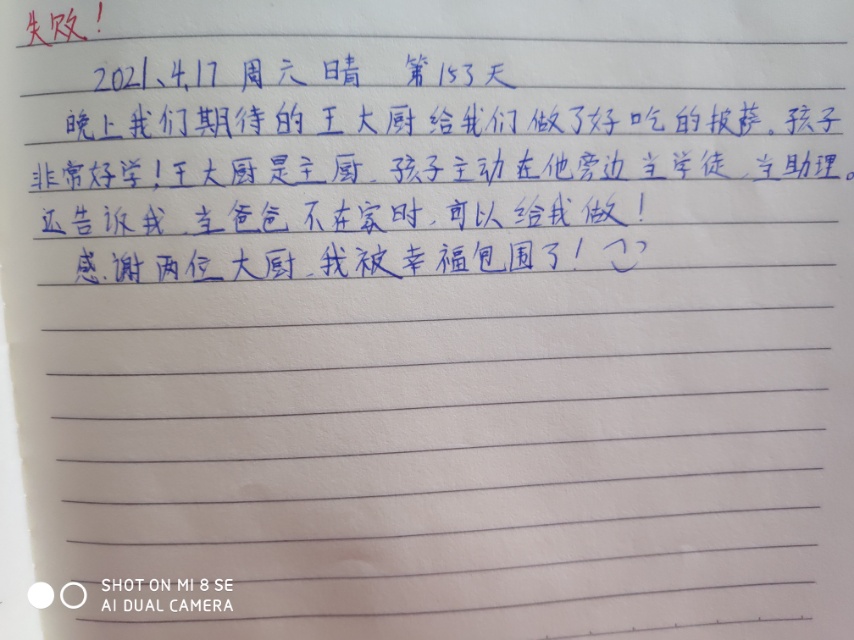 失败！
2021、4.17 周六 晴 第153天
晚上我们期待的王大厨给我们做了好吃的披萨。孩子
非常好学！王大厨是主厨、孩子主动在他旁边当学徒、当助理。
还告诉我、当爸爸不在家时、可以给我做！
感谢两位大厨、我被幸福包围了！
SHOT ON MI 8 SE
AI DUAL CAMERA